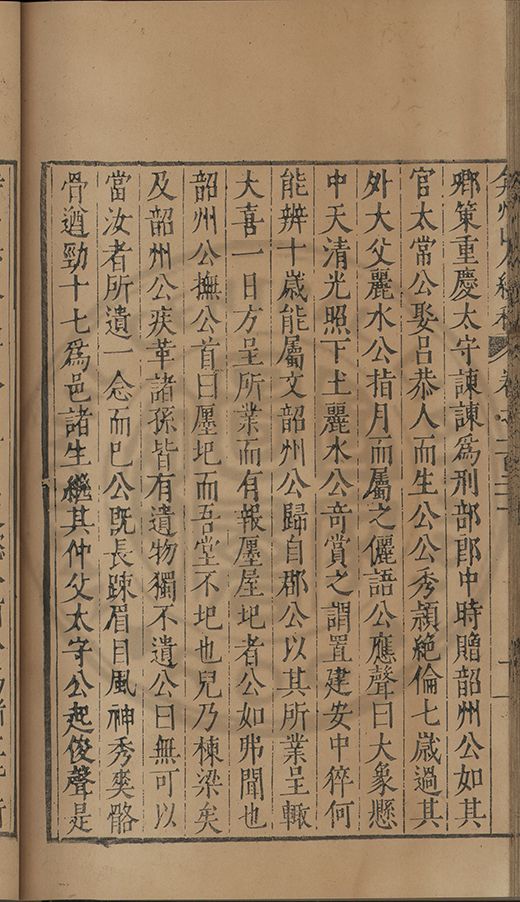 鄉䇿重慶太守諫諫爲刑部郎中時贈韶州公如其
官太常公娶呂恭人而生公公秀頴絶倫七歲過其
外大父麗水公指月而屬之儷語公應聲曰大象懸
中天清光照下土麗水公竒賞之謂置建安中猝何
能辨十歲能屬文韶州公歸自郡公以其所業呈輙
大喜一日方呈所業而有報㕓屋圯者公如弗聞也
韶州公撫公首曰㕓圯而吾堂不圯也兒乃棟梁矣
及韶州公疾革諸孫皆有遺物獨不遺公曰無可以
當汝者所遺一念而巳公旣長踈眉目風神秀奕骼
骨遒勁十七爲邑諸生繼其仲父太守公起俊聲是